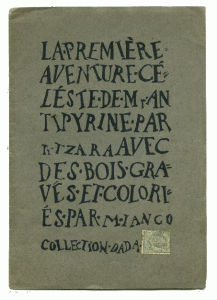 LA·PREMIÈRE·
AVENTURE·CÉ=
LÉSTE·DE·Mr·AN
TIPYRINE·PAR
Tr·TZARA AVEC
DES·BOIS·GRA=
VÉS·ET·COLORI=
ÉS·PAR·M·IANCO
COLLECTION·DADA